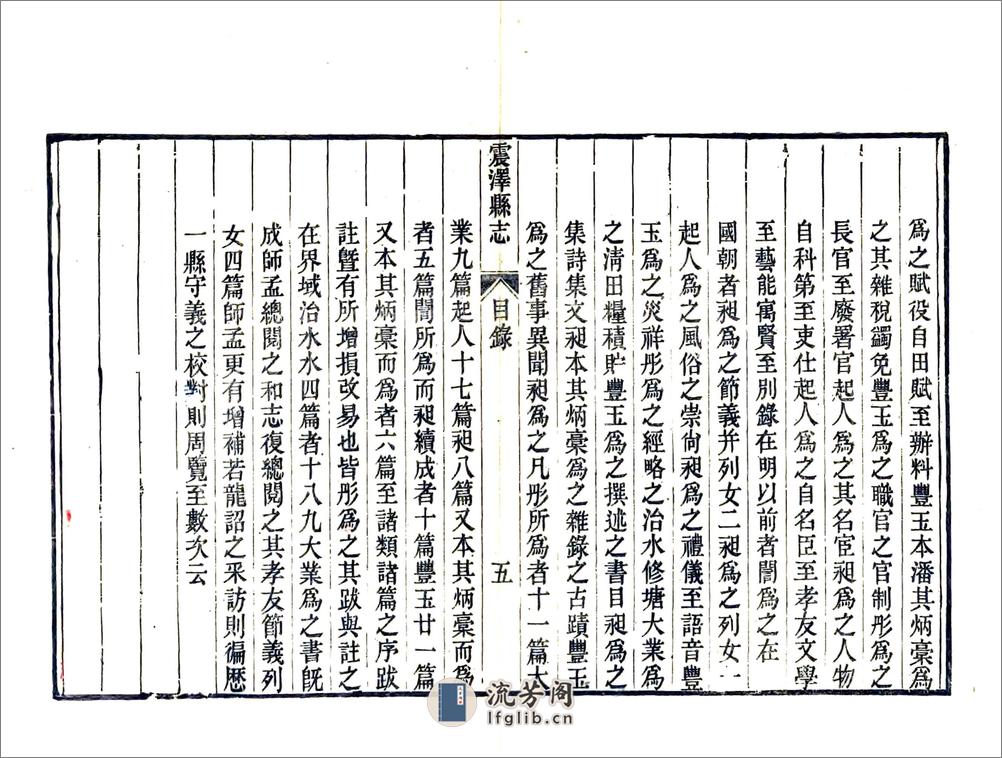 為之賦役自田賦至辦料豐玉本潘其炳稾為
之其雜稅蠲免豐玉為之職官之官制彤為之
長官至廢署官起人為之其名宦昶為之人物
自科第至吏仕起人為之自名臣至孝友文學
至藝能寓賢至別錄在明以前者誾為之在
國朝者昶為之節義并列女二昶為之列女一
起人為之風俗之崇尚昶為之禮儀至語音豐
玉為之災祥彤為之經略之治水修塘大業為
之淸田糧積貯豐玉為之撰述之書目昶為之
集詩集文昶本其炳稾為之雜錄之古蹟豐玉
為之舊事異聞昶為之凡彤所為者十一篇大
震澤縣志
目錄
五
業九篇起人十七篇昶八篇又本其炳稾而為
者五篇誾所為而昶續成者十篇豐玉廿一篇
又本其炳稾而為者六篇至諸類諸篇之序跋
註曁有所增損改易也皆彤為之其跋與註之
在界域治水水四篇者十八九大業為之書旣
成師孟總閱之和志復總閱之其孝友節義列
女四篇師孟更有增補若龍詔之采訪則徧歷
一縣守義之校對則周覽至數次云
流芳阁
lfglib.cn